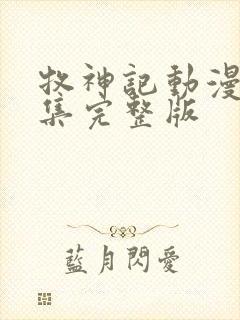 牧神記動漫
集完整版
藍月閃愛